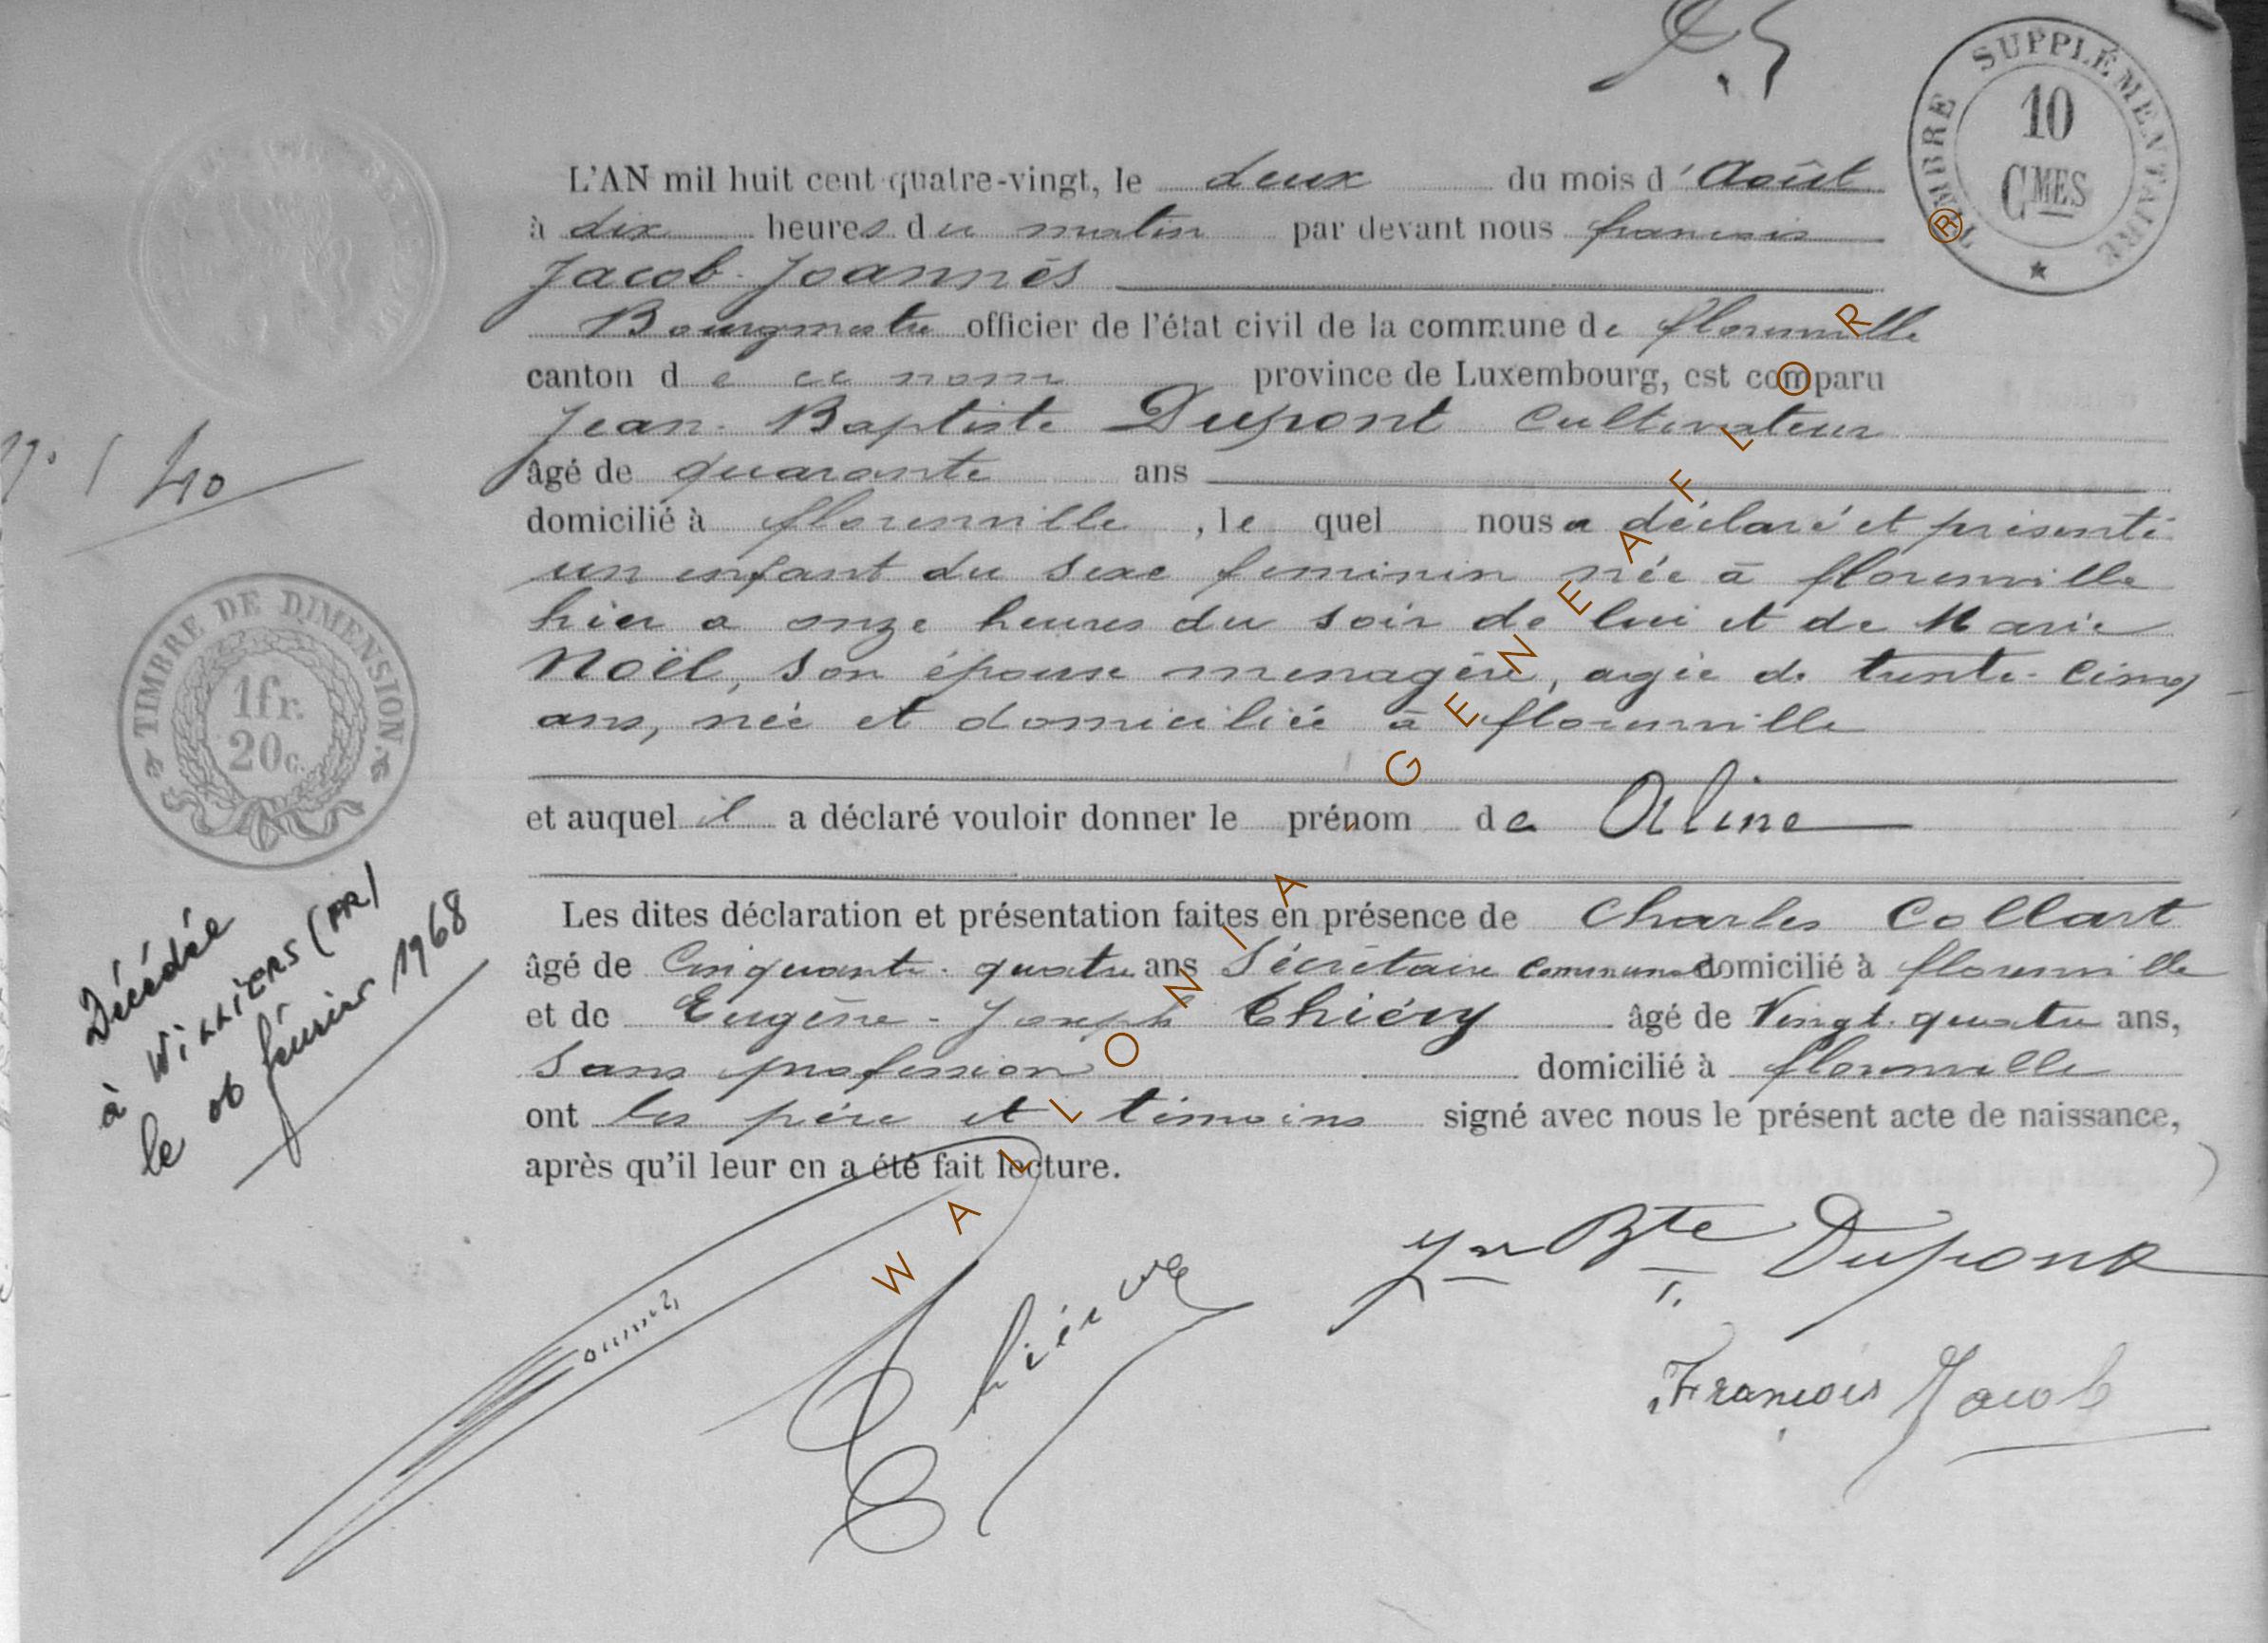 TIMBRE SUPPLÉMENTAIRE
10
CMES
L'AN mil huit cent quatre-vingt, le deux du mois d'Août
à dix heures du matin par devant nous françois
Jacob-Joannès
Bourgmestre officier de l'état civil de la commune de florenville
canton de ce nom province de Luxembourg, est comparu
Jean-Baptiste Dupont Cultivateur
âgé de quarante ans
N° 40
domicilié à florenville, le quel nous a déclaré et présenté
un enfant du sexe feminin née à florenville
hier a onze heures du soir de lui et de Marie
Noël, son épouse menagère, agée de trente-cinq
ans, née et domiciliée à florenville
TIMBRE DE DIMENSION
1fr.
20c.
et auquel il a déclaré vouloir donner le prénom de Aline
Les dites déclaration et présentation faites en présence de Charles Collart
âgé de Cinquante-quatre ans Sécrétaire communal domicilié à florenville
et de Eugène-Joseph Thiéry âgé de Vingt-quatre ans,
sans profession domicilié à florenville
ont les père et témoins signé avec nous le présent acte de naissance,
après qu'il leur en a été fait lecture.
Décédée
à WiLLiERS (FR)
le 06 février 1968
Jn Bte Dupont
Thiéry
François Jacob
WALLONIA GENEAFLOR ®